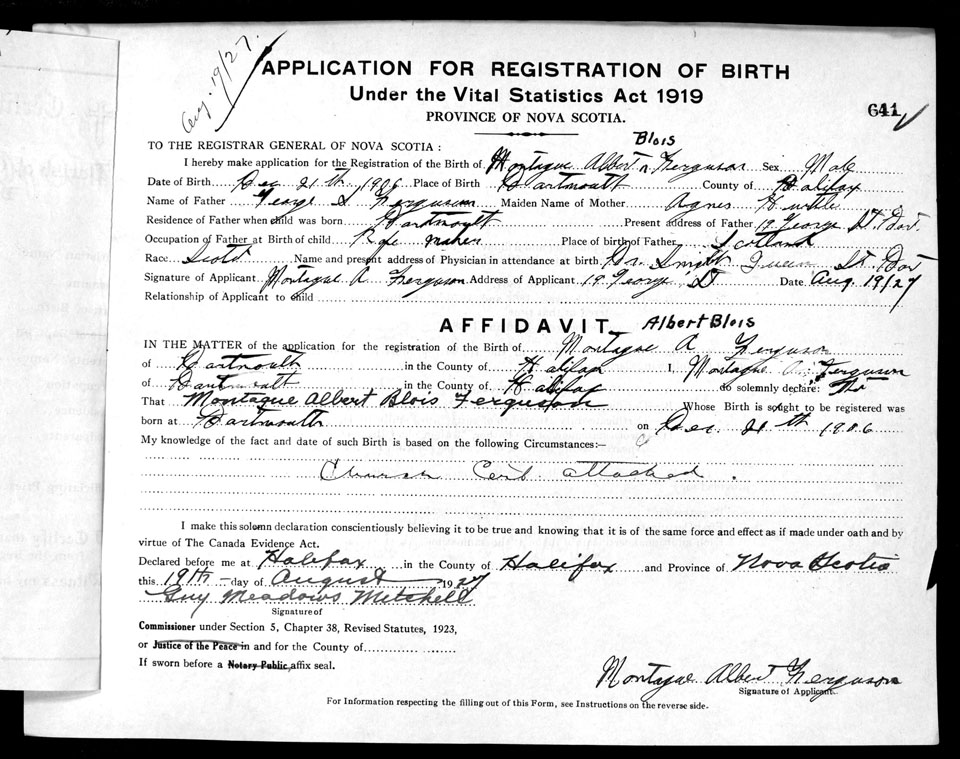 Aug. 19/27.
APPLICATION FOR REGISTRATION OF BIRTH
Under the Vital Statistics Act 1919
PROVINCE OF NOVA SCOTIA.
641
TO THE REGISTRAR GENERAL OF NOVA SCOTIA :
Blois
I hereby make application for the Registration of the Birth of Montague Albert Ferguson Sex Male
Date of Birth Dec 21th, 1906 Place of Birth Dartmouth County of Halifax
Name of Father George Ferguson Maiden Name of Mother Agnes
Residence of Father when child was born Dartmouth Present address of Father 19 George St. Dar.
Occupation of Father at Birth of child Rope maker Place of birth of Father Scotland
Race Scotch Name and present address of Physician in attendance at birth Dr. Smith Queen St. Dar
Signature of Applicant Montague A Ferguson Address of Applicant 19 George St Date Aug 19/27
Relationship of Applicant to child
AFFIDAVIT Albert Blois
IN THE MATTER of the application for the registration of the Birth of Montague A Ferguson
of Dartmouth in the County of Halifax I, Montague A. Ferguson
of Dartmouth in the County of Halifax do solemnly declare:
That Montague Albert Blois Ferguson Whose Birth is sought to be registered was
born at Dartmouth on Dec. 21th 1906
My knowledge of the fact and date of such Birth is based on the following Circumstances:–
Church Cert attached.
I make this solemn declaration conscientiously believing it to be true and knowing that it is of the same force and effect as if made under oath and by
virtue of The Canada Evidence Act.
Declared before me at Halifax in the County of Halifax and Province of Nova Scotia
this 19th day of August 1927
Guy Meadows Mitchell
Signature of
Commissioner under Section 5, Chapter 38, Revised Statutes, 1923,
or Justice of the Peace in and for the County of
If sworn before a Notary Public, affix seal.
Montague Albert Ferguson
Signature of Applicant.
For Information respecting the filling out of this Form, see Instructions on the reverse side.